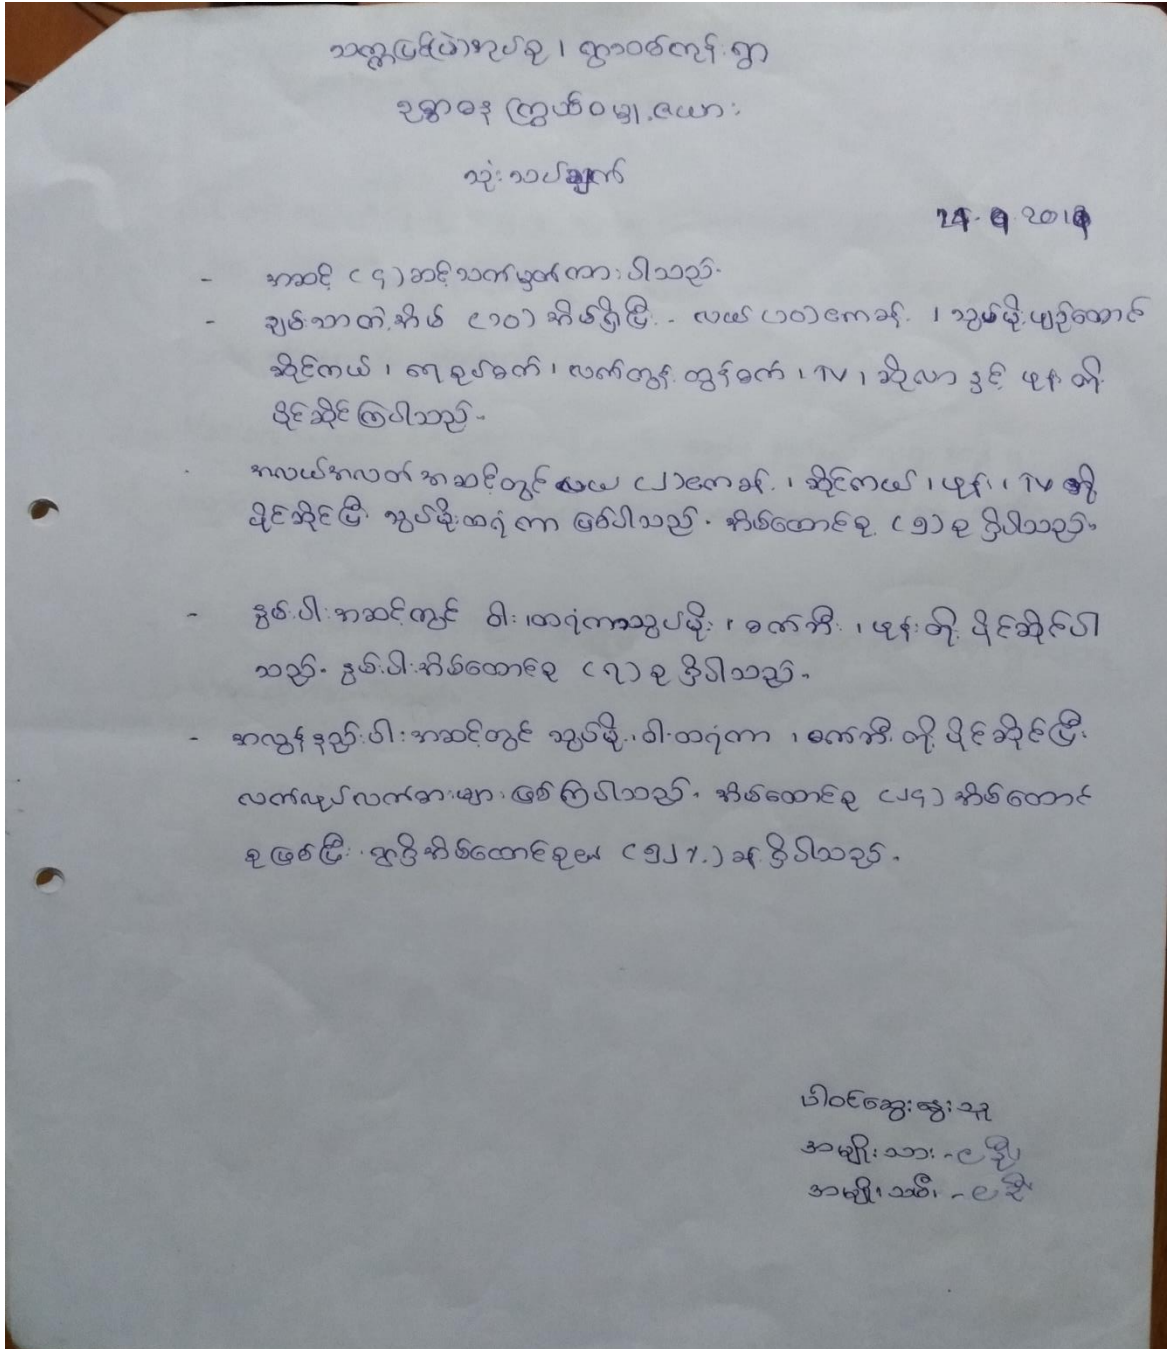 သတ္တပြင်ကြဲအုပ်စု ၊ ရွာဝစ်ကုန်းရွာ
ဥစ္စာဓန ကြွယ်ဝမှု ဇယား
သုံးသပ်ချက်
- အဆင့် (၄) ဆင့် သတ်မှတ်ထားပါသည်။
- ချမ်းသာတဲ့ အိမ် (၁၀) အိမ်ရှိပြီး - လယ် (၁၀) ဧကခန့် ၊ သွပ်မိုးပျဉ်ထောင်
ဆိုင်ကယ် ၊ ရေစုပ်စက် ၊ လက်တွန်းထွန်စက် ၊ TV ၊ ဆိုလာ နှင့် ဖုန်း တို့
ပိုင်ဆိုင်ကြပါသည်။
- အလယ်အလတ် အဆင့်တွင် လယ် (၂) ဧကခန့် ၊ ဆိုင်ကယ် ၊ ဖုန်း ၊ TV တို့
ပိုင်ဆိုင်ပြီး သွပ်မိုးထရံကာ ဖြစ်ပါသည်။ အိမ်ထောင်စု (၅) စု ရှိပါသည်။
- နွမ်းပါးအဆင့်တွင် ဝါးထရံကာသွပ်မိုး ၊ စက်ဘီး ၊ ဖုန်းတို့ ပိုင်ဆိုင်ပါ
သည်။ နွမ်းပါးအိမ်ထောင်စု (၇) စု ရှိပါသည်။
- အလွန်နည်းပါးအဆင့်တွင် သွပ်မိုး ၊ ဝါးထရံကာ ၊ စက်ဘီးတို့ ပိုင်ဆိုင်ပြီး
လက်လုပ်လက်စားများ ဖြစ်ကြပါသည်။ အိမ်ထောင်စု (၂၄) အိမ်ထောင်
စုဖြစ်ပြီး ရွာရှိအိမ်ထောင်စု၏ (၅၂%) ခန့် ရှိပါသည်။
ပါဝင်ဆွေးနွေးသူ
အမျိုးသား - ၉ ဦး
အမျိုးသမီး - ၉ ဦး